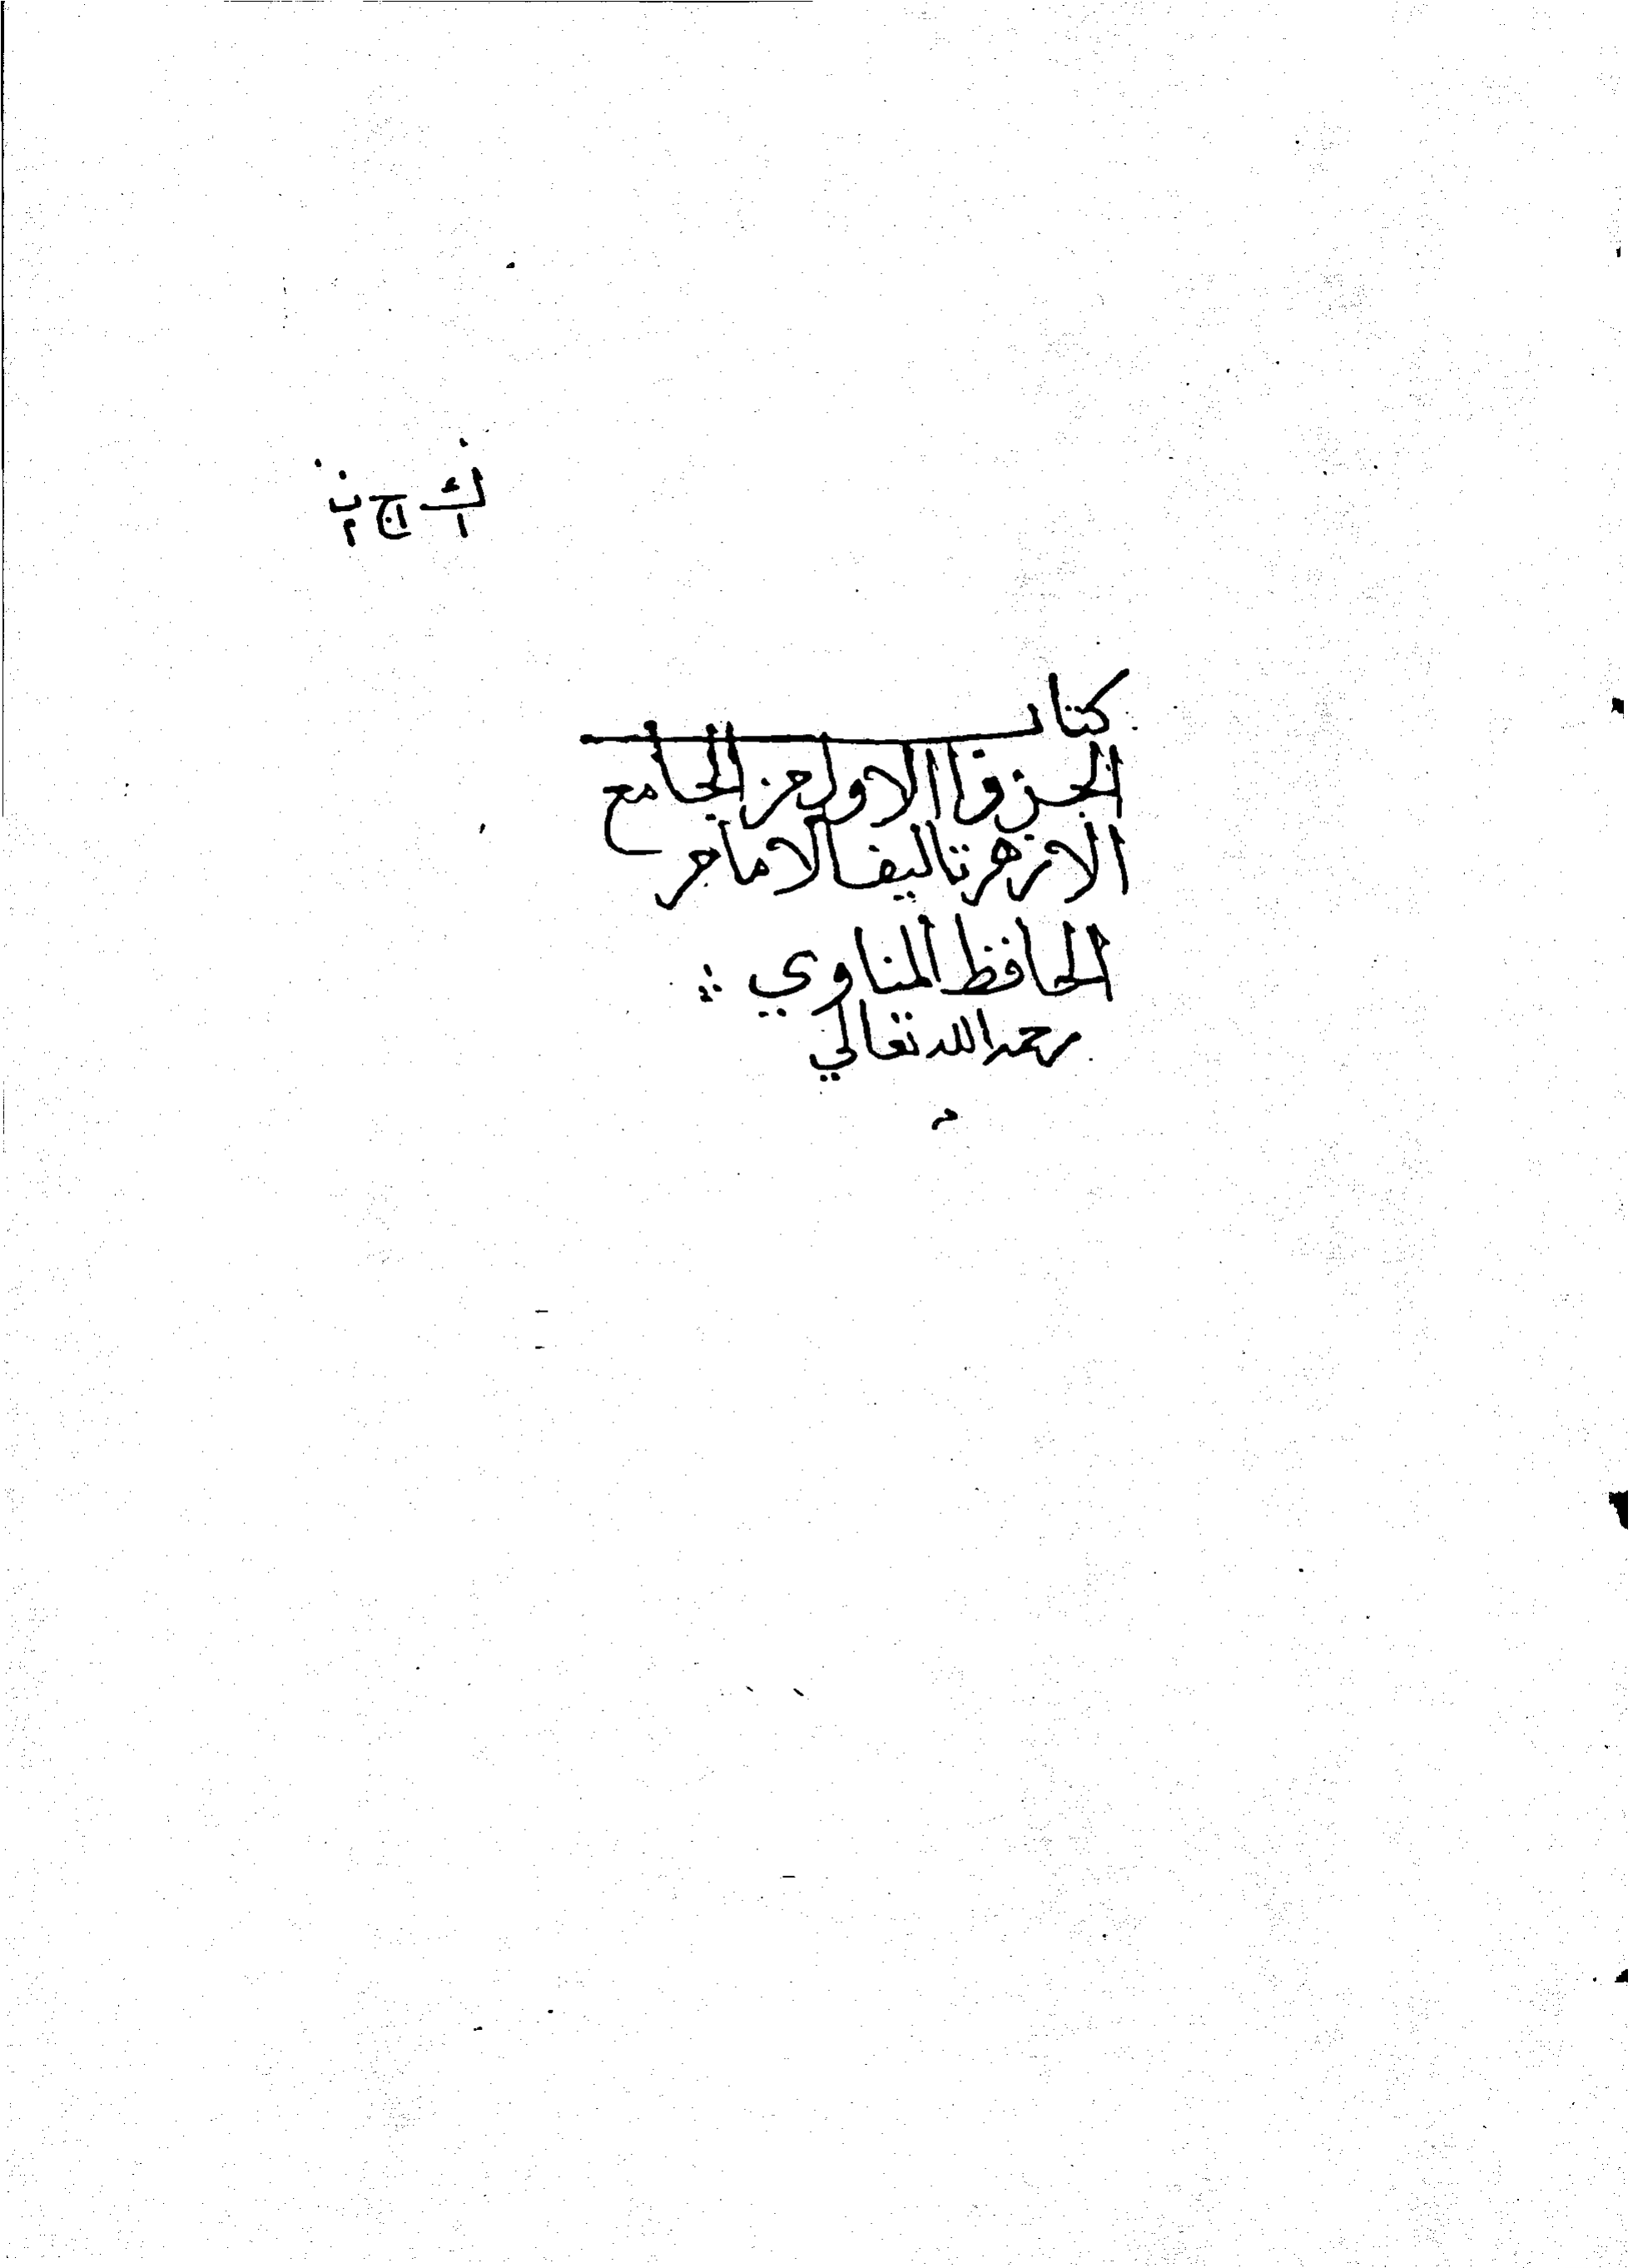 كتاب
الجزؤا الاول من الجامع
الازهر تاليف الامام
الحافظ المناوي
رحمه الله تعالي